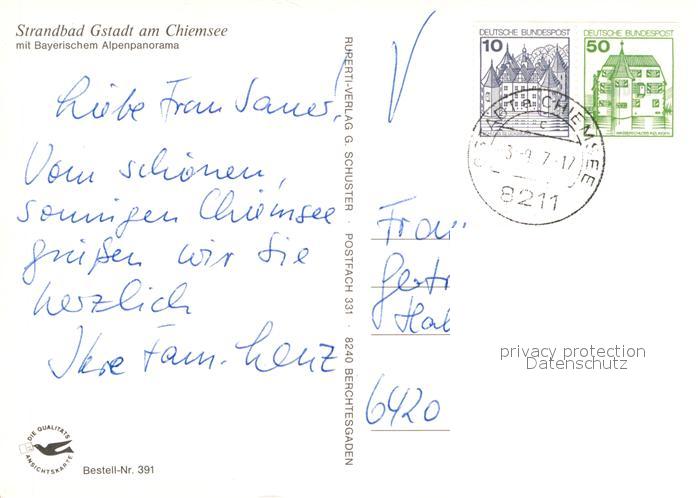 Strandbad Gstadt am Chiemsee
mit Bayerischem Alpenpanorama
Liebe Frau Sauer!
Vom schönen,
sonnigen Chiemsee
grüßen wir Sie
herzlich
Ihre Fam. Lenz
DIE QUALITÄTS
ANSICHTSKARTE
Bestell-Nr. 391
RUPERTI-VERLAG G. SCHUSTER · POSTFACH 331 · 8240 BERCHTESGADEN
DEUTSCHE BUNDESPOST
10
DEUTSCHE BUNDESPOST
50
CHIEMSEE
c
8211
Frau
Gertr
6420
privacy protection
Datenschutz